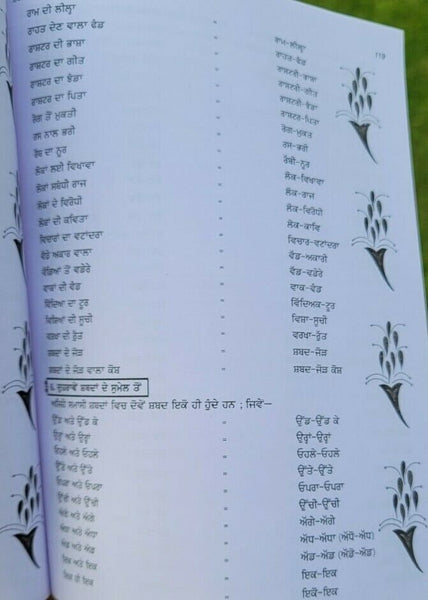 ਰਾਮ ਦੀ ਲੀਲ੍ਹਾ " ਰਾਮ-ਲੀਲ੍ਹਾ
119
ਰਾਹਤ ਦੇਣ ਵਾਲਾ ਫੰਡ " ਰਾਹਤ-ਫੰਡ
ਰਾਸ਼ਟਰ ਦੀ ਭਾਸ਼ਾ " ਰਾਸ਼ਟਰੀ-ਭਾਸ਼ਾ
ਰਾਸ਼ਟਰ ਦਾ ਗੀਤ " ਰਾਸ਼ਟਰੀ-ਗੀਤ
ਰਾਸ਼ਟਰ ਦਾ ਝੰਡਾ " ਰਾਸ਼ਟਰੀ-ਝੰਡਾ
ਰਾਸ਼ਟਰ ਦਾ ਪਿਤਾ " ਰਾਸ਼ਟਰ-ਪਿਤਾ
ਰੋਗ ਤੋਂ ਮੁਕਤੀ " ਰੋਗ-ਮੁਕਤ
ਰਸ ਨਾਲ ਭਰੀ " ਰਸ-ਭਰੀ
ਰੱਬ ਦਾ ਨੂਰ " ਰੱਬੀ-ਨੂਰ
ਲੋਕਾਂ ਲਈ ਵਿਖਾਵਾ " ਲੋਕ-ਵਿਖਾਵਾ
ਲੋਕਾਂ ਸਬੰਧੀ ਰਾਜ " ਲੋਕ-ਰਾਜ
ਲੋਕਾਂ ਦੇ ਵਿਰੋਧੀ " ਲੋਕ-ਵਿਰੋਧੀ
ਲੋਕਾਂ ਦੀ ਕਵਿਤਾ " ਲੋਕ-ਕਾਵਿ
ਵਿਚਾਰਾਂ ਦਾ ਵਟਾਂਦਰਾ " ਵਿਚਾਰ-ਵਟਾਂਦਰਾ
ਵੱਡੇ ਅਕਾਰ ਵਾਲਾ " ਵੱਡ-ਅਕਾਰੀ
ਵੱਡਿਆਂ ਤੋਂ ਵਡੇਰੇ " ਵੱਡ-ਵਡੇਰੇ
ਵਾਕਾਂ ਦੀ ਵੰਡ " ਵਾਕ-ਵੰਡ
ਵਿੱਦਿਆ ਦਾ ਟੂਰ " ਵਿੱਦਿਅਕ-ਟੂਰ
ਵਿਸ਼ਿਆਂ ਦੀ ਸੂਚੀ " ਵਿਸ਼ਾ-ਸੂਚੀ
ਵਰਖਾ ਦੀ ਰੁੱਤ " ਵਰਖਾ-ਰੁੱਤ
ਸ਼ਬਦਾਂ ਦੇ ਜੋੜ " ਸ਼ਬਦ-ਜੋੜ
ਸ਼ਬਦਾਂ ਦੇ ਜੋੜ ਵਾਲਾ ਕੋਸ਼ " ਸ਼ਬਦ-ਜੋੜ ਕੋਸ਼
ਦੁਹਰਾਵੇਂ ਸ਼ਬਦਾਂ ਦੇ ਸੁਮੇਲ ਤੋਂ
ਅਜਿਹੇ ਸਮਾਸੀ ਸ਼ਬਦਾਂ ਵਿਚ ਦੋਵੇਂ ਸ਼ਬਦ ਇਕੋ ਹੀ ਹੁੰਦੇ ਹਨ ; ਜਿਵੇਂ—
ਉੱਡ ਅਤੇ ਉੱਡ ਕੇ " ਉੱਡ-ਉੱਡ ਕੇ
ਉਰ੍ਹਾਂ ਅਤੇ ਉਰ੍ਹਾਂ " ਉਰ੍ਹਾਂ-ਉਰ੍ਹਾਂ
ਓਹਲੇ ਅਤੇ ਓਹਲੇ " ਓਹਲੇ-ਓਹਲੇ
ਉੱਤੇ ਅਤੇ ਉੱਤੇ " ਉੱਤੇ-ਉੱਤੇ
ਓਪਰਾ ਅਤੇ ਓਪਰਾ " ਓਪਰਾ-ਓਪਰਾ
ਉੱਚੀ ਅਤੇ ਉੱਚੀ " ਉੱਚੀ-ਉੱਚੀ
ਅੱਗੇ ਅਤੇ ਅੱਗੇ " ਅੱਗੇ-ਅੱਗੇ
ਅੱਧਾ ਅਤੇ ਅੱਧਾ " ਅੱਧ-ਅੱਧਾ (ਅੱਧੋ-ਅੱਧ)
ਅੱਡ ਅਤੇ ਅੱਡ " ਅੱਡ-ਅੱਡ (ਅੱਡੋ-ਅੱਡ)
ਇਕ ਅਤੇ ਇਕ " ਇਕ-ਇਕ
ਇਕ ਹੀ ਇਕ " ਇਕੋ-ਇਕ